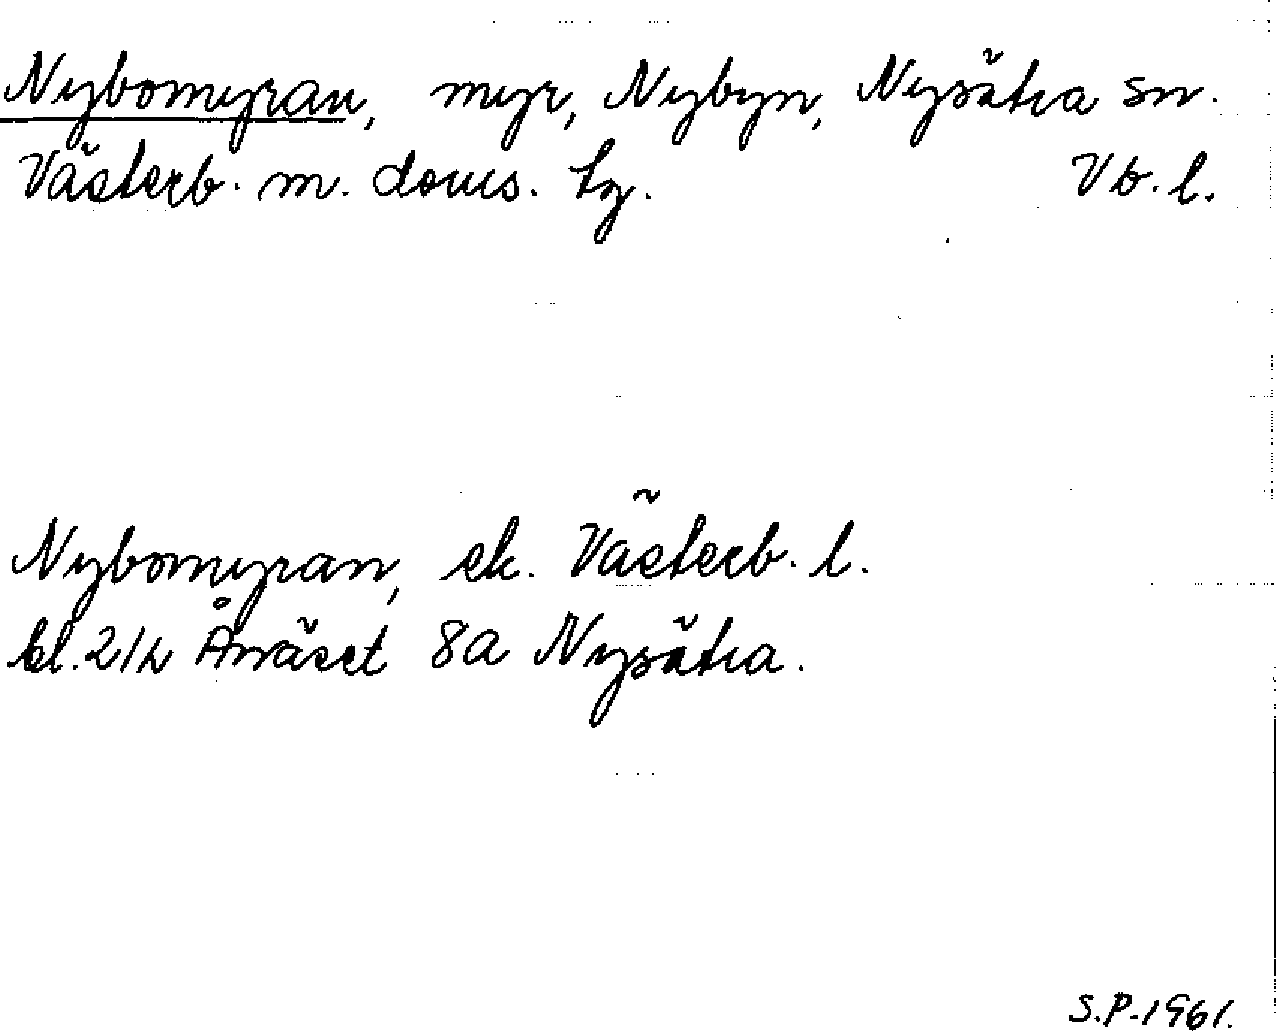 Nybomyran, myr, Nybyn, Nysätra sn.
Västerb. m. doms. tg. Vb. l.
Nybomyran, ek. Västerb. l.
bl. 21h Ånäset 8a Nysätra.
S.P. 1961.